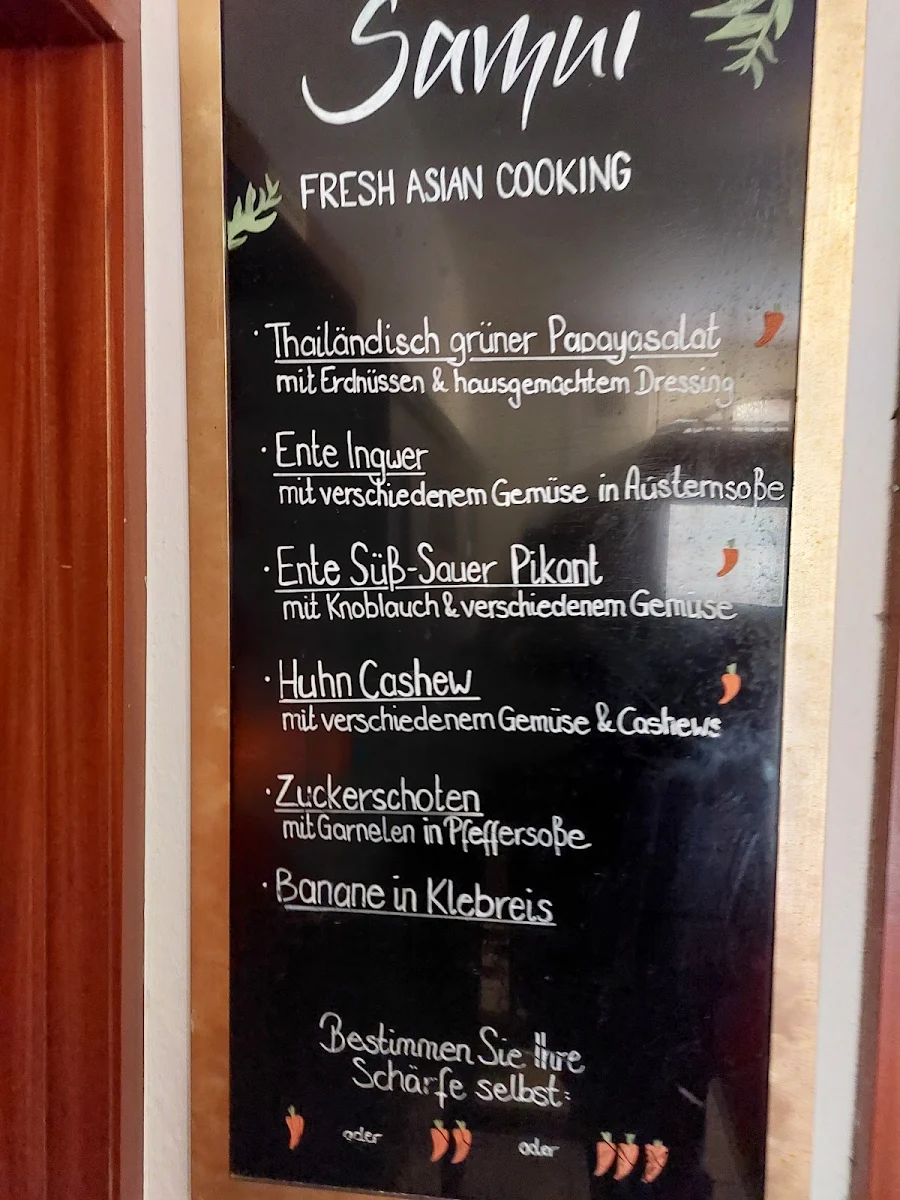 Samui
FRESH ASIAN COOKING
· Thailändisch grüner Papayasalat
mit Erdnüssen & hausgemachtem Dressing
· Ente Ingwer
mit verschiedenem Gemüse in Austernsoße
· Ente Süß-Sauer Pikant
mit Knoblauch & verschiedenem Gemüse
· Huhn Cashew
mit verschiedenem Gemüse & Cashews
· Zuckerschoten
mit Garnelen in Pfeffersoße
· Banane in Klebreis
Bestimmen Sie Ihre
Schärfe selbst:
oder oder